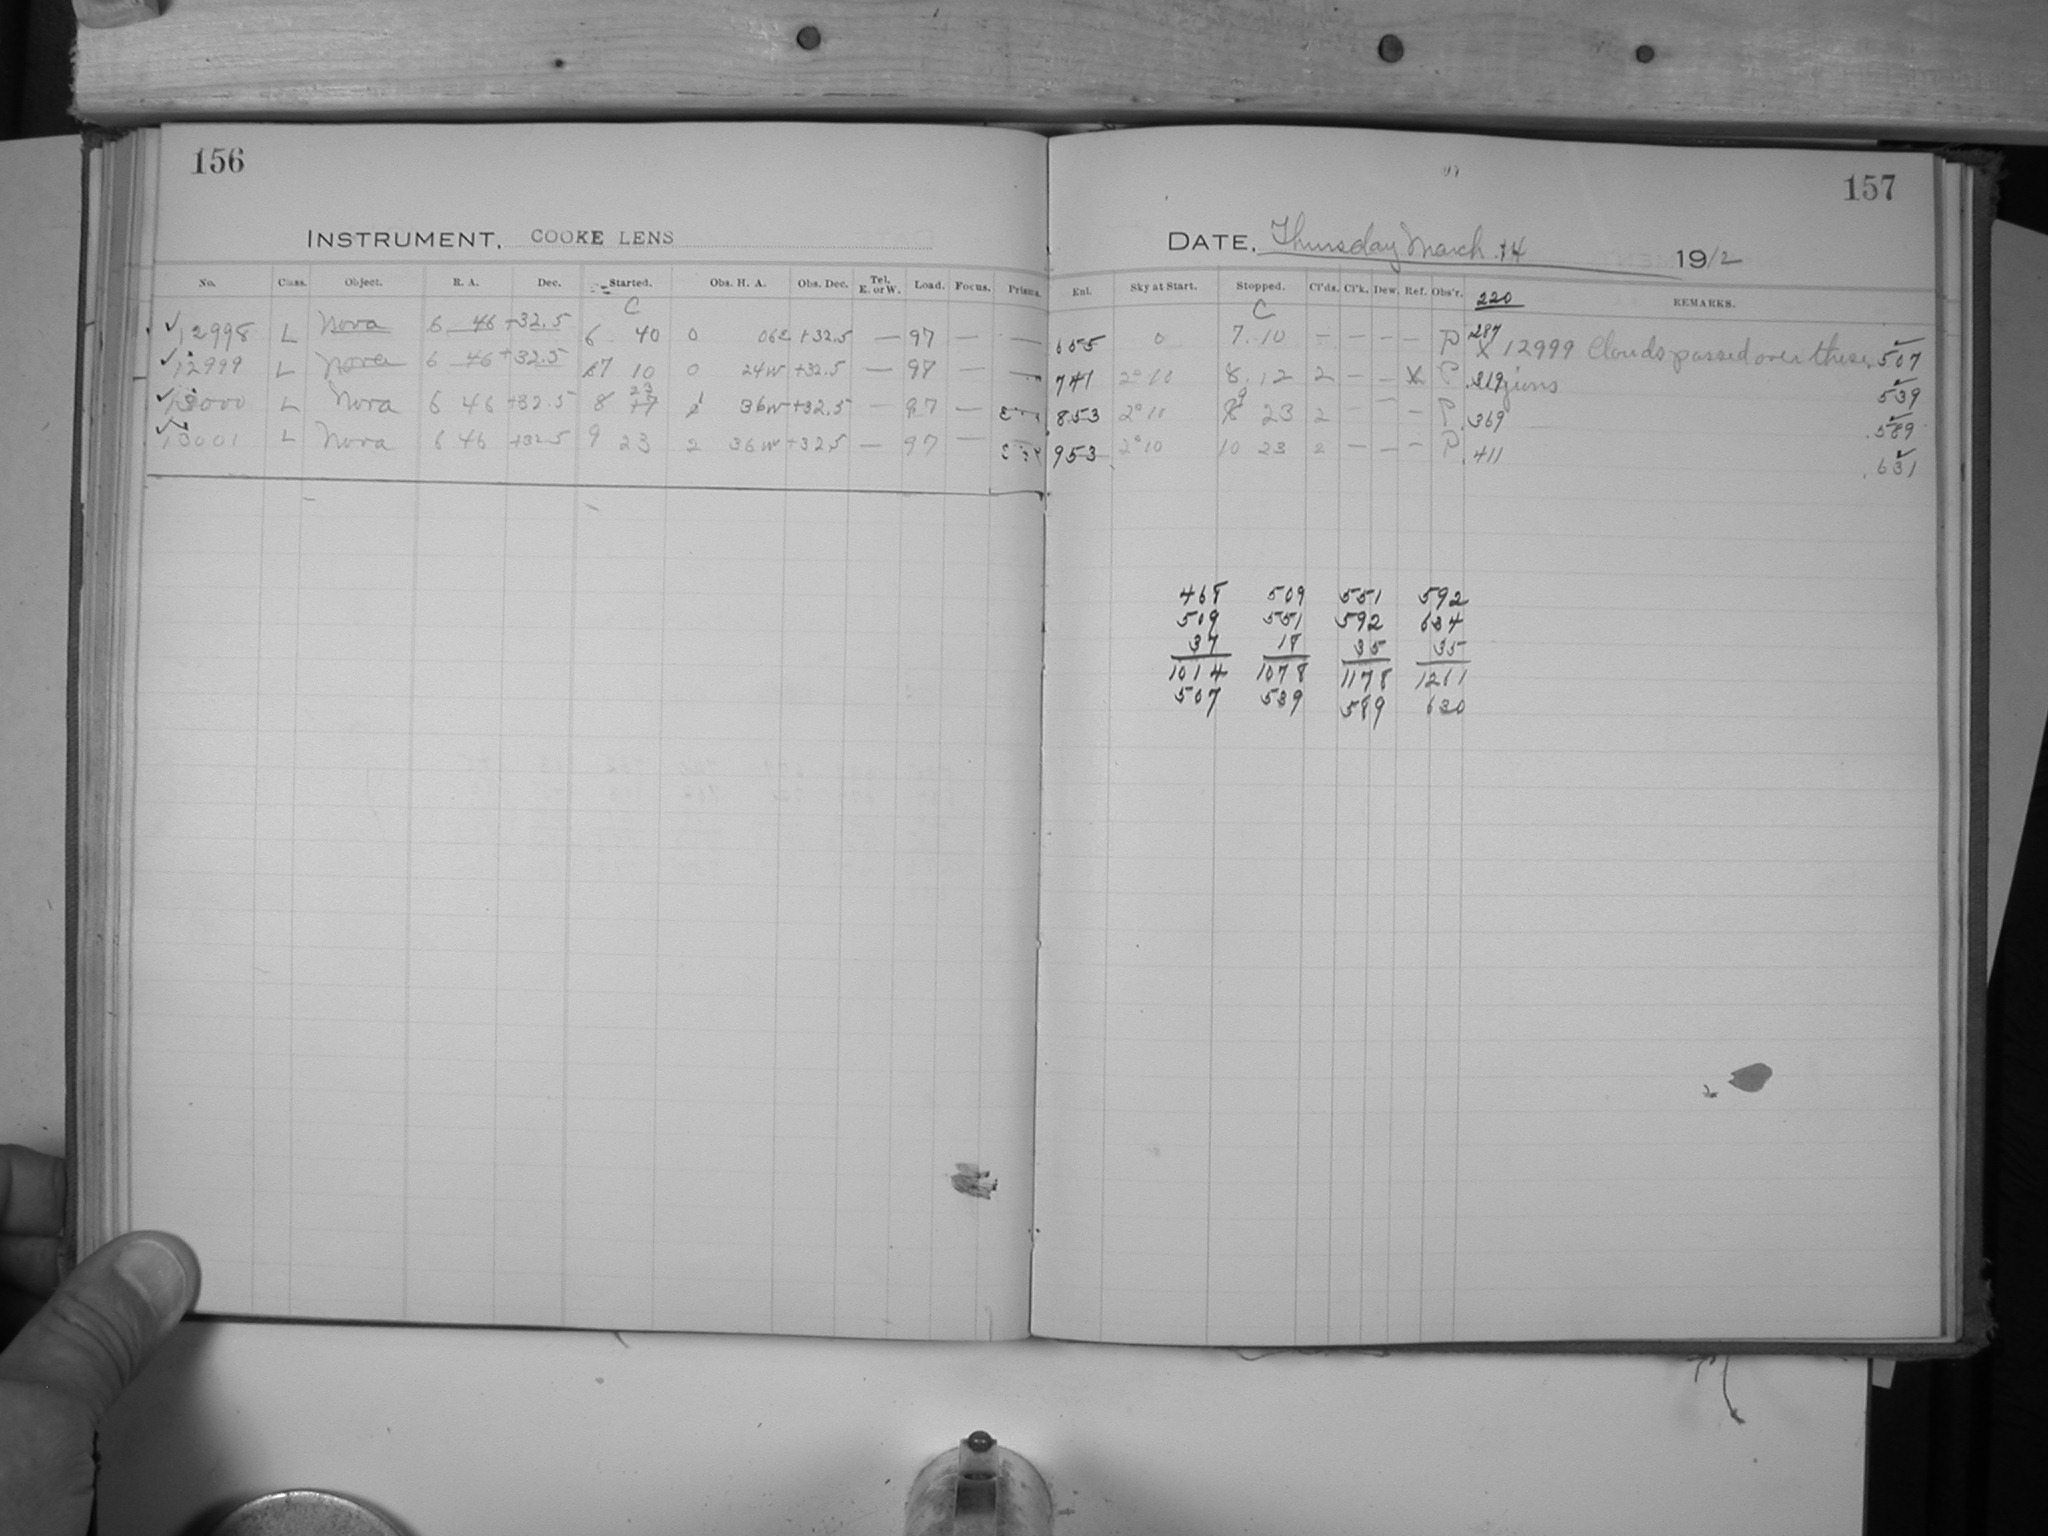 156
INSTRUMENT. COOKE LENS
No. Class. Object. R. A. Dec. Started. Obs. H. A. Obs. Dec. Tel. E. or W. Load. Focus. Prisms.
C
✓12998 L Nova 6 46 +32.5 6 40 0 06E +32.5 — 97 — —
✓12999 L Nova 6 46 +32.5 7 10 0 24W +32.5 — 97 — —
✓13000 L Nova 6 46 +32.5 8 23 1 36W +32.5 — 97 —
✓13001 L Nova 6 46 +32.5 9 23 2 36W +32.5 — 97 —
157
DATE. Thursday March 14 1912
Enl. Sky at Start. Stopped. Cl'ds. Cl'k. Dew. Ref. Obs'r. 220 REMARKS.
C
655 0 7.10 — — — — P .287 X 12999 Clouds passed over these .507
741 2°10 8.12 2 — — X P .319 .539
853 2°10 9 23 2 — — — P .369 .589
953 2°10 10 23 2 — — — P .411 .631
468 509 551 592
509 551 592 634
37 18 35 35
1014 1078 1178 1261
507 539 589 630